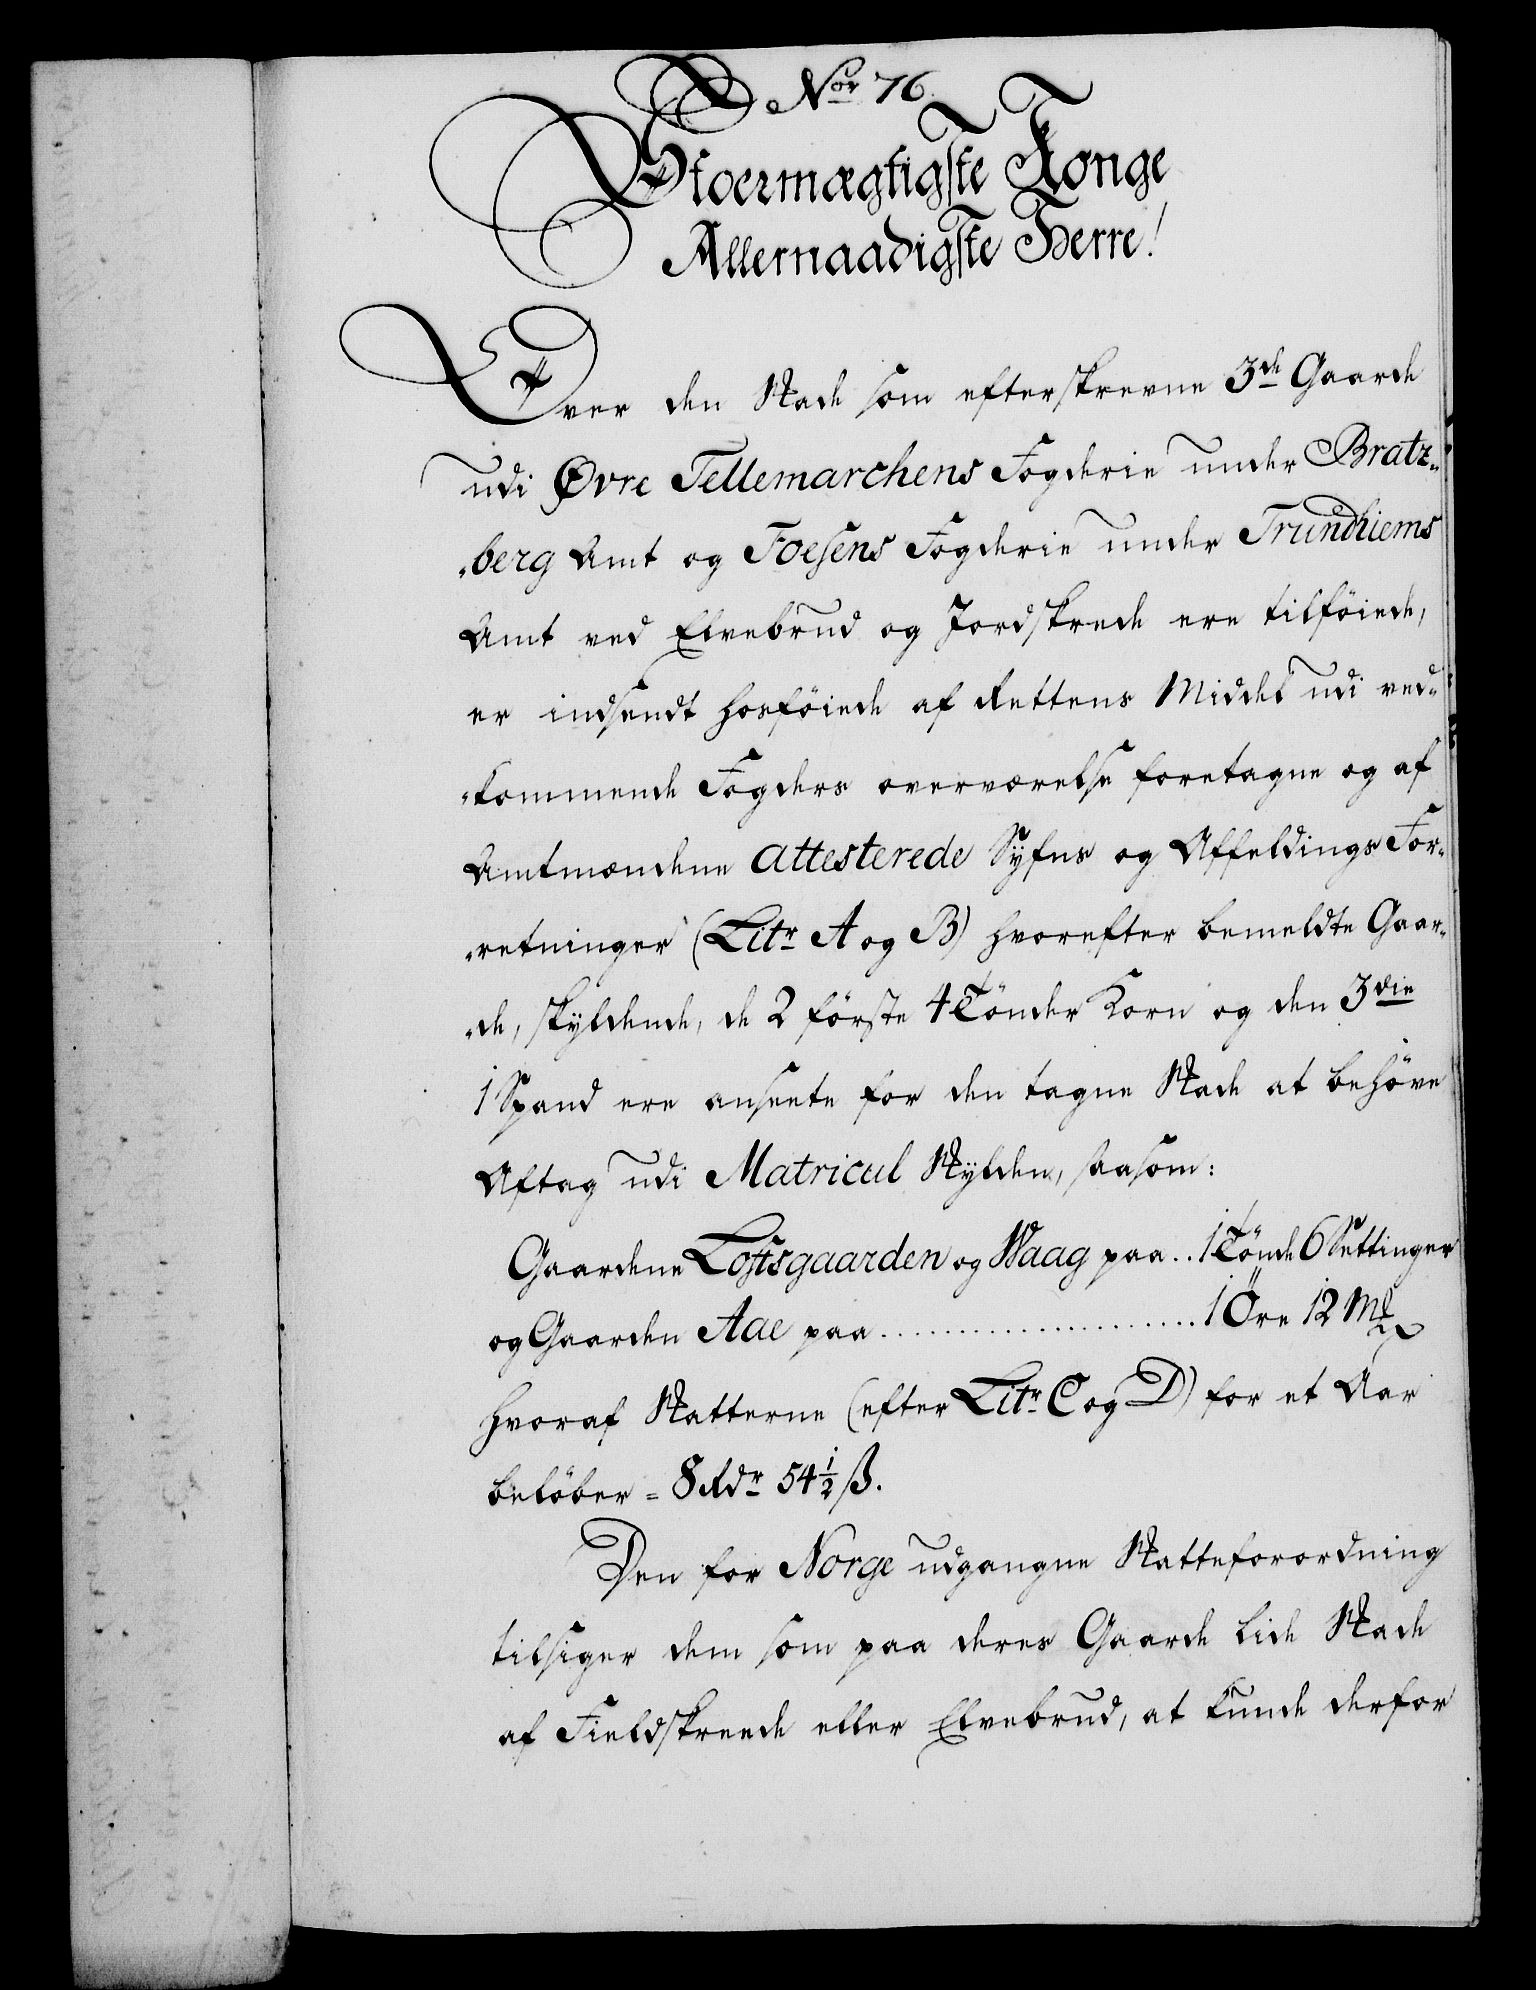 Nor 76.
Stoermægtigste Konge
Allernaadigste Herre!
Over den Skade som efterskrevne 3de Gaarde
udi Øvre Tellemarchens Fogderie under Bratz-
-berg Amt og Foesens Fogderie under Trundhiems
Amt ved Elvebrud og Jordskrede ere tilføiede,
er indsendt hosføiede af Rettens Middel udi ved-
-kommende Fogders overværelse foretagne og af
Amtmændene attesterede Syfns og Affældings For-
-retninger (Litr A og B) hvorefter bemeldte Gaar-
-de, skyldende, de 2 første 4 Tønder Korn og den 3die
1 Spand ere ansette for den tagne Skade at behøve
Aftag udi Matricul Skylden, saasom:
Gaardene Loftsgaarden og Waag paa .. 1 Tønde 6 Settinger
og Gaarden Aae paa ..................... 1 Öre 12 Mk
hvoraf Skatterne (efter Litr C og D) for et Aar
beløber = 8 Rdr 54 1/2 ß.
Den for Norge udgangne Skatteforordning
tilsiger dem som paa deres Gaarde lide Skade
af Fieldskreede eller Elvebrud, at kunde derfor